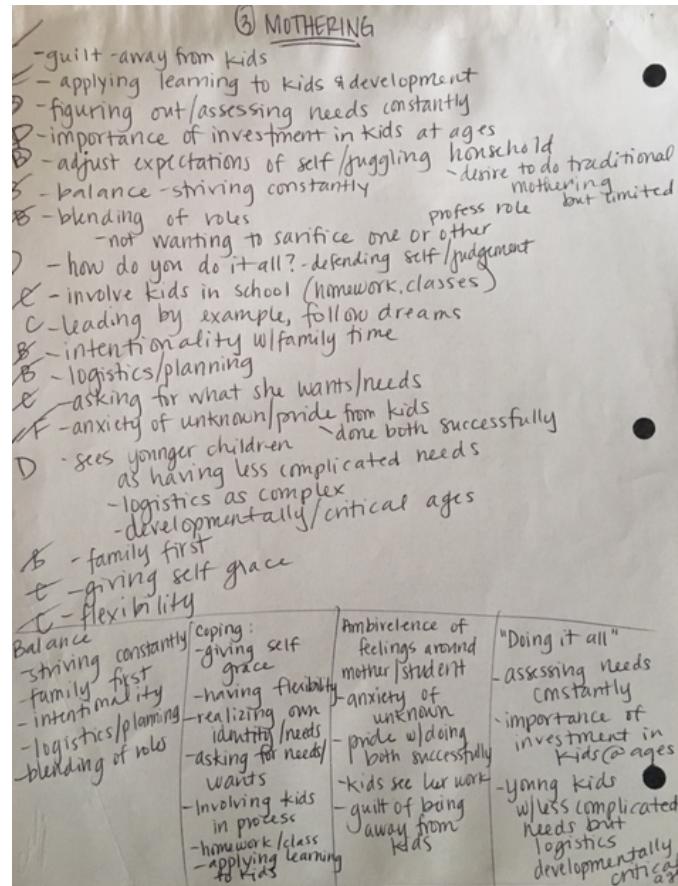 ③ MOTHERING
-guilt -away from kids
- applying learning to kids & development
D -figuring out/assessing needs constantly
D -importance of investment in kids at ages
B -adjust expectations of self/juggling household
-desire to do traditional
mothering
but limited
B - balance -striving constantly
B - blending of roles
profess role
-not wanting to sarifice one or other
D - how do you do it all? -defending self/judgement
C - involve kids in school (homework, classes)
C -leading by example, follow dreams
B -intentionality w/family time
B - logistics/planning
C -asking for what she wants/needs
F -anxiety of unknown/pride from kids
-done both successfully
D - sees younger children
as having less complicated needs
-logistics as complex
-developmentally/critical ages
B - family first
C -giving self grace
C -flexibility
Balance
-striving constantly
-family first
- intentionality
-logistics/planning
-blending of roles
Coping:
-giving self
grace
-having flexibility
-realizing own
identity/needs
-asking for needs/
wants
-Involving kids
in process
-homework/class
-applying learning
to kids
Ambivelence of
feelings around
mother/student
-anxiety of
unknown
- pride w/doing
both successfully
-kids see her work
- guilt of being
away from
kids
"Doing it all"
-assessing needs
constantly
-importance of
investment in
kids@ages
-young kids
w/less complicated
needs but
logistics
developmentally
critical